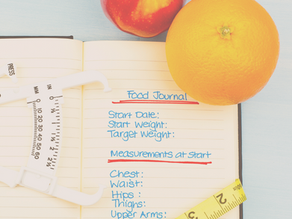 Food Journal
Start Date:
Start Weight:
Target Weight:
Measurements at Start
Chest:
Waist:
Hips:
Thighs:
Upper Arms:
PRESS
MM
%
2